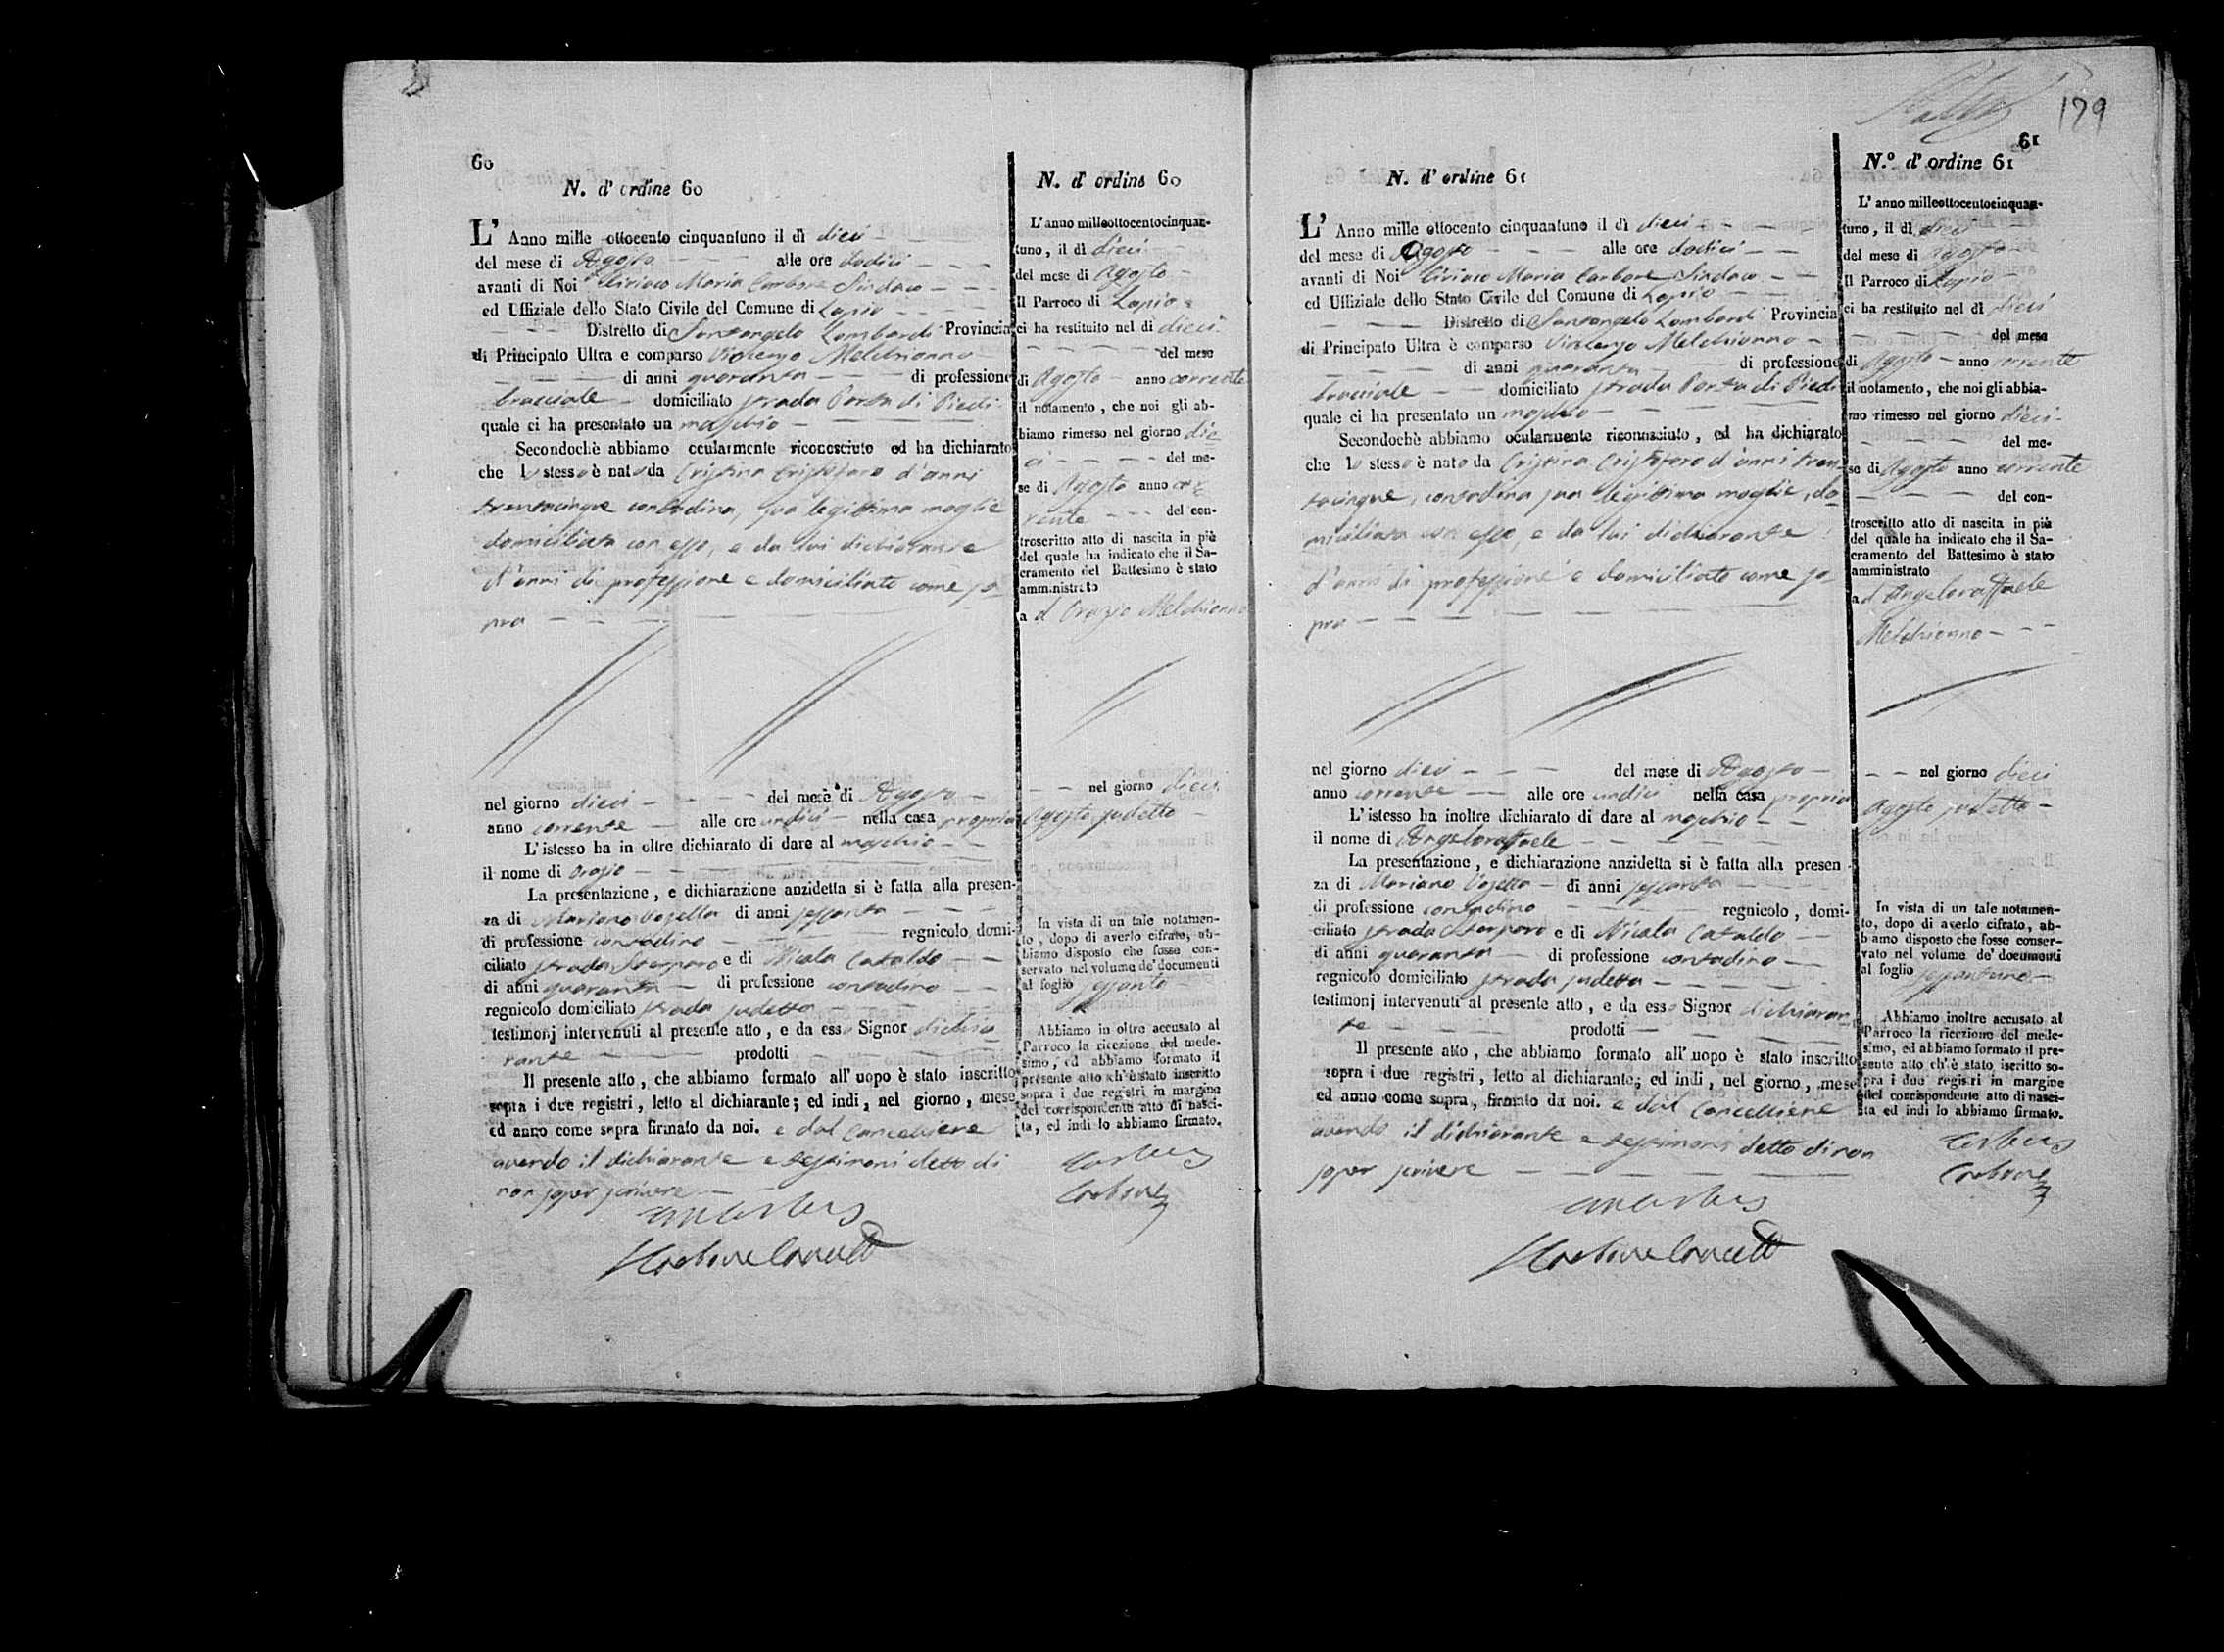 60
N. d' ordine 60
L' Anno mille ottocento cinquantuno il dì dieci
del mese di Agosto alle ore dodici
avanti di Noi Ciriaco Maria Carbone Sindaco
ed Uffiziale dello Stato Civile del Comune di Lapio
Distretto di Santangelo Lombardi Provincia
di Principato Ultra e comparso Vincenzo Melchionno
di anni quaranta di professione
bracciale domiciliato strada Porta di Piedi
quale ci ha presentato un maschio
Secondochè abbiamo ocularmente riconosciuto ed ha dichiarato
che lo stesso è nato da Cristina Cristofaro d'anni
trentacinque contadina, sua legittima moglie
domiciliata con esso, e da lui dichiarante
d'anni di professione e domiciliato come so-
pra
nel giorno dieci del mese di Agosto
anno corrente alle ore undici nella casa propria
L' istesso ha in oltre dichiarato di dare al maschio
il nome di Orazio
La presentazione, e dichiarazione anzidetta si è fatta alla presen-
za di Mariano di anni sessanta
di professione contadino regnicolo, domi-
ciliato strada e di Nicola Cataldo
di anni quaranta di professione contadino
regnicolo domiciliato strada sudetta
testimonj intervenuti al presente atto, e da esso Signor dichia
rante prodotti
Il presente atto, che abbiamo formato all' uopo è stato inscritto
sopra i due registri, letto al dichiarante; ed indi, nel giorno, mese
ed anno come sopra firmato da noi. e dal Cancelliere
avendo il dichiarante e testimoni detto di
non saper scrivere
N. d' ordine 60
L' anno milleottocentocinquan-
tuno, il dì dieci
del mese di Agosto
Il Parroco di Lapio
ci ha restituito nel dì dieci
del mese
di Agosto anno corrente
il notamento, che noi gli ab-
biamo rimesso nel giorno die
ci del me-
se di Agosto anno cor
rente del con-
troscritto atto di nascita in più
del quale ha indicato che il Sa-
cramento del Battesimo è stato
amministrato
a d Orazio Melchionno
nel giorno dieci
Agosto sudetto
In vista di un tale notamen-
to, dopo di averlo cifrato, ab-
biamo disposto che fosse con-
servato nel volume de' documenti
al foglio sessanta
Abbiamo in oltre accusato al
Parroco la ricezione del mede-
simo, ed abbiamo formato il
presente atto ch' è stato inscritto
sopra i due registri in margine
del corrispondente atto di nasci-
ta, ed indi lo abbiamo firmato.
Carbone
179
61
N. d' ordine 61
L' Anno mille ottocento cinquantuno il dì dieci
del mese di Agosto alle ore dodici
avanti di Noi Ciriaco Maria Carbone Sindaco
ed Uffiziale dello Stato Civile del Comune di Lapio
Distretto di Santangelo Lombardi Provincia
di Principato Ultra è comparso Vincenzo Melchionno
di anni quaranta di professione
bracciale domiciliato strada Porta di Piedi
quale ci ha presentato un maschio
Secondochè abbiamo ocularmente riconosciuto, ed ha dichiarato
che lo stesso è nato da Cristina Cristofaro d'anni tren-
tacinque, contadina sua legittima moglie, do
miciliata con esso, e da lui dichiarante
d'anni di professione e domiciliato come so-
pra
nel giorno dieci del mese di Agosto
anno corrente alle ore undici nella casa propria
L' istesso ha inoltre dichiarato di dare al maschio
il nome di Angeloraffaele
La presentazione, e dichiarazione anzidetta si è fatta alla presen-
za di Mariano di anni sessanta
di professione contadino regnicolo, domi-
ciliato strada e di Nicola Cataldo
di anni quaranta di professione contadino
regnicolo domiciliato strada sudetta
testimonj intervenuti al presente atto, e da esso Signor dichiaran
te prodotti
Il presente atto, che abbiamo formato all' uopo è stato inscritto
sopra i due registri, letto al dichiarante; ed indi, nel giorno, mese
ed anno come sopra, firmato da noi. e dal Cancelliere
avendo il dichiarante e testimoni detto di non
saper scrivere
N.º d' ordine 61
L' anno milleottocentocinquan-
tuno, il dì dieci
del mese di Agosto
Il Parroco di Lapio
ci ha restituito nel dì dieci
del mese
di Agosto anno corrente
il notamento, che noi gli abbia-
mo rimesso nel giorno dieci
del me-
se di Agosto anno corrente
del con-
troscritto atto di nascita in più
del quale ha indicato che il Sa-
cramento del Battesimo è stato
amministrato
a d Angeloraffaele
Melchionno
nel giorno dieci
Agosto sudetto
In vista di un tale notamen-
to, dopo di averlo cifrato, ab-
biamo disposto che fosse conser-
vato nel volume de' documenti
al foglio sessantuno
Abbiamo inoltre accusato al
Parroco la ricezione del mede-
simo, ed abbiamo formato il pre-
sente atto ch' è stato iscritto so-
pra i due registri in margine
del corrispondente atto di nasci-
ta ed indi lo abbiamo firmato.
Carbone